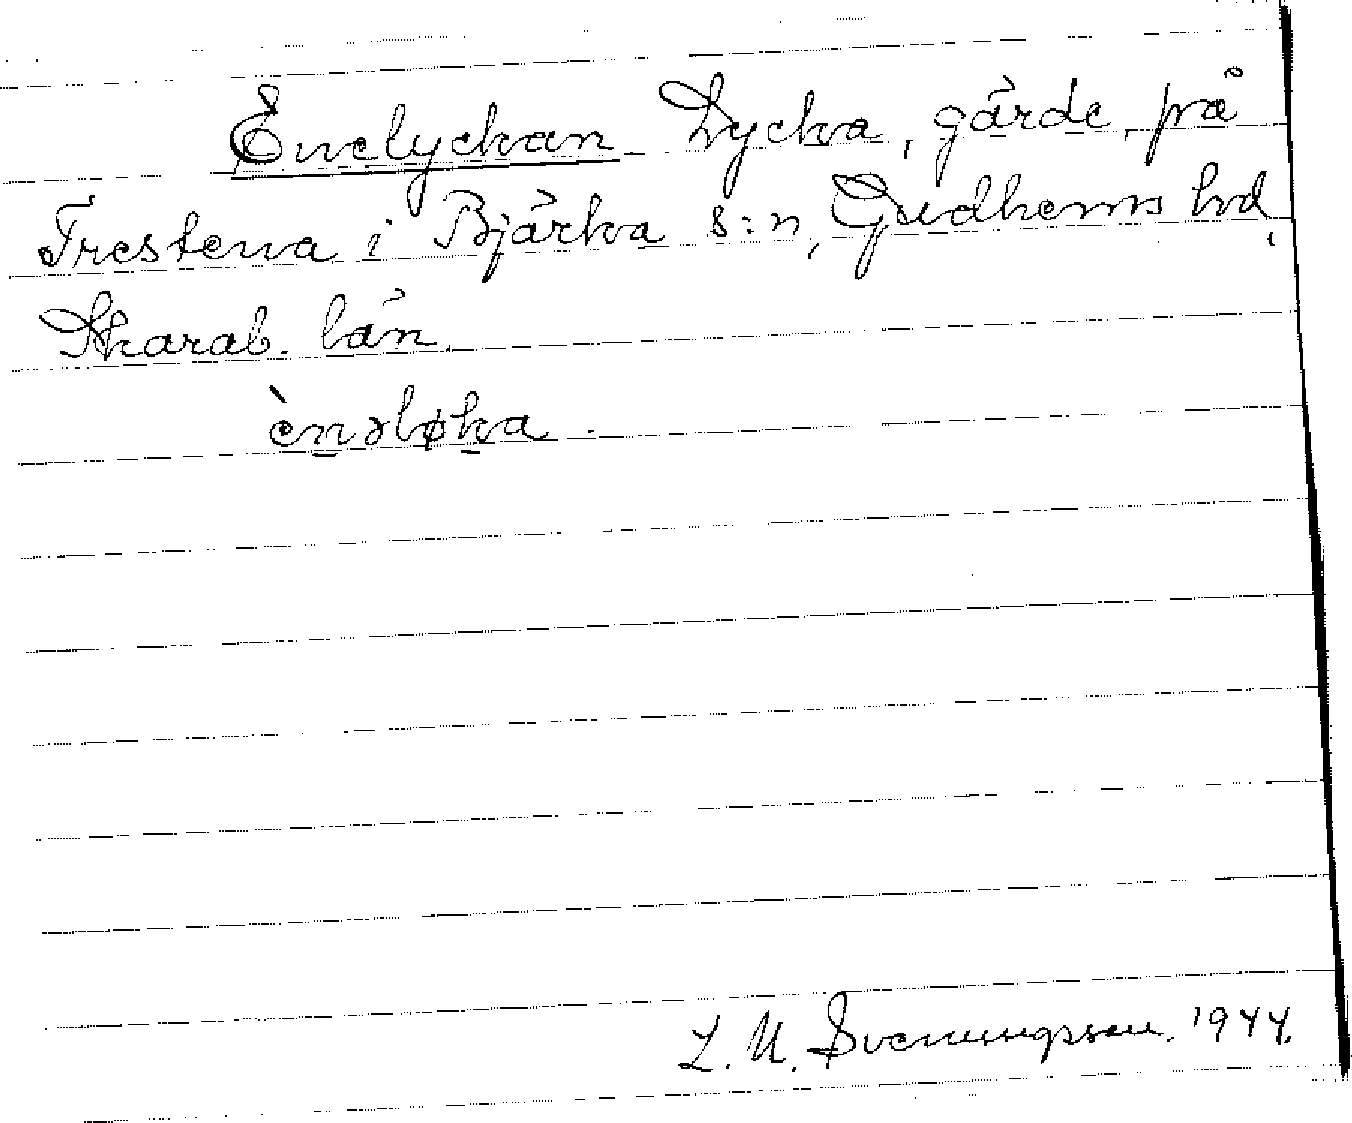 Enelyckan Lycka, gärde, på
Trestena i Bjärka s:n, Gudhems hd,
Skarab. län.
ènəløka.
L. M. Svenungsson. 1944.